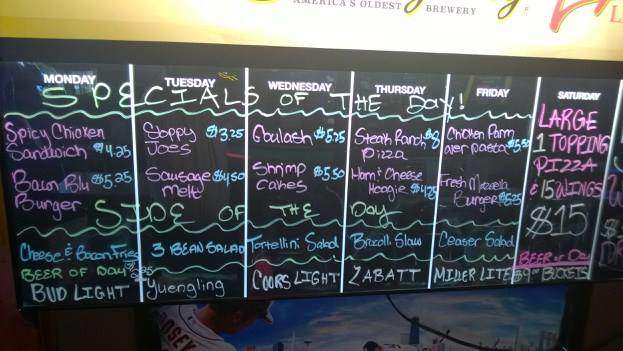 AMERICA'S OLDEST BREWERY
MONDAY TUESDAY WEDNESDAY THURSDAY FRIDAY SATURDAY
SPECIALS OF THE DAY!
Spicy Chicken Sandwich $4.25
Bacon Blu Burger $5.25
Sloppy Joes $3.25
Sausage melt $4.50
Goulash $5.25
Shrimp cakes $5.50
Steak Ranch Pizza $8
Ham & Cheese Hoagie
Chicken Parm over pasta $5.50
Fresh Burger $5.25
LARGE
1 TOPPING
PIZZA
& 15 WINGS
$15
SIDE OF THE DAY
Cheese & Bacon Fries
3 BEAN SALAD
Tortellini Salad
Brocolli Slaw
Ceaser Salad
BEER OF DAY
BUD LIGHT
Yuengling
COORS LIGHT
LABATT
MILLER LITE
BEER OF Day